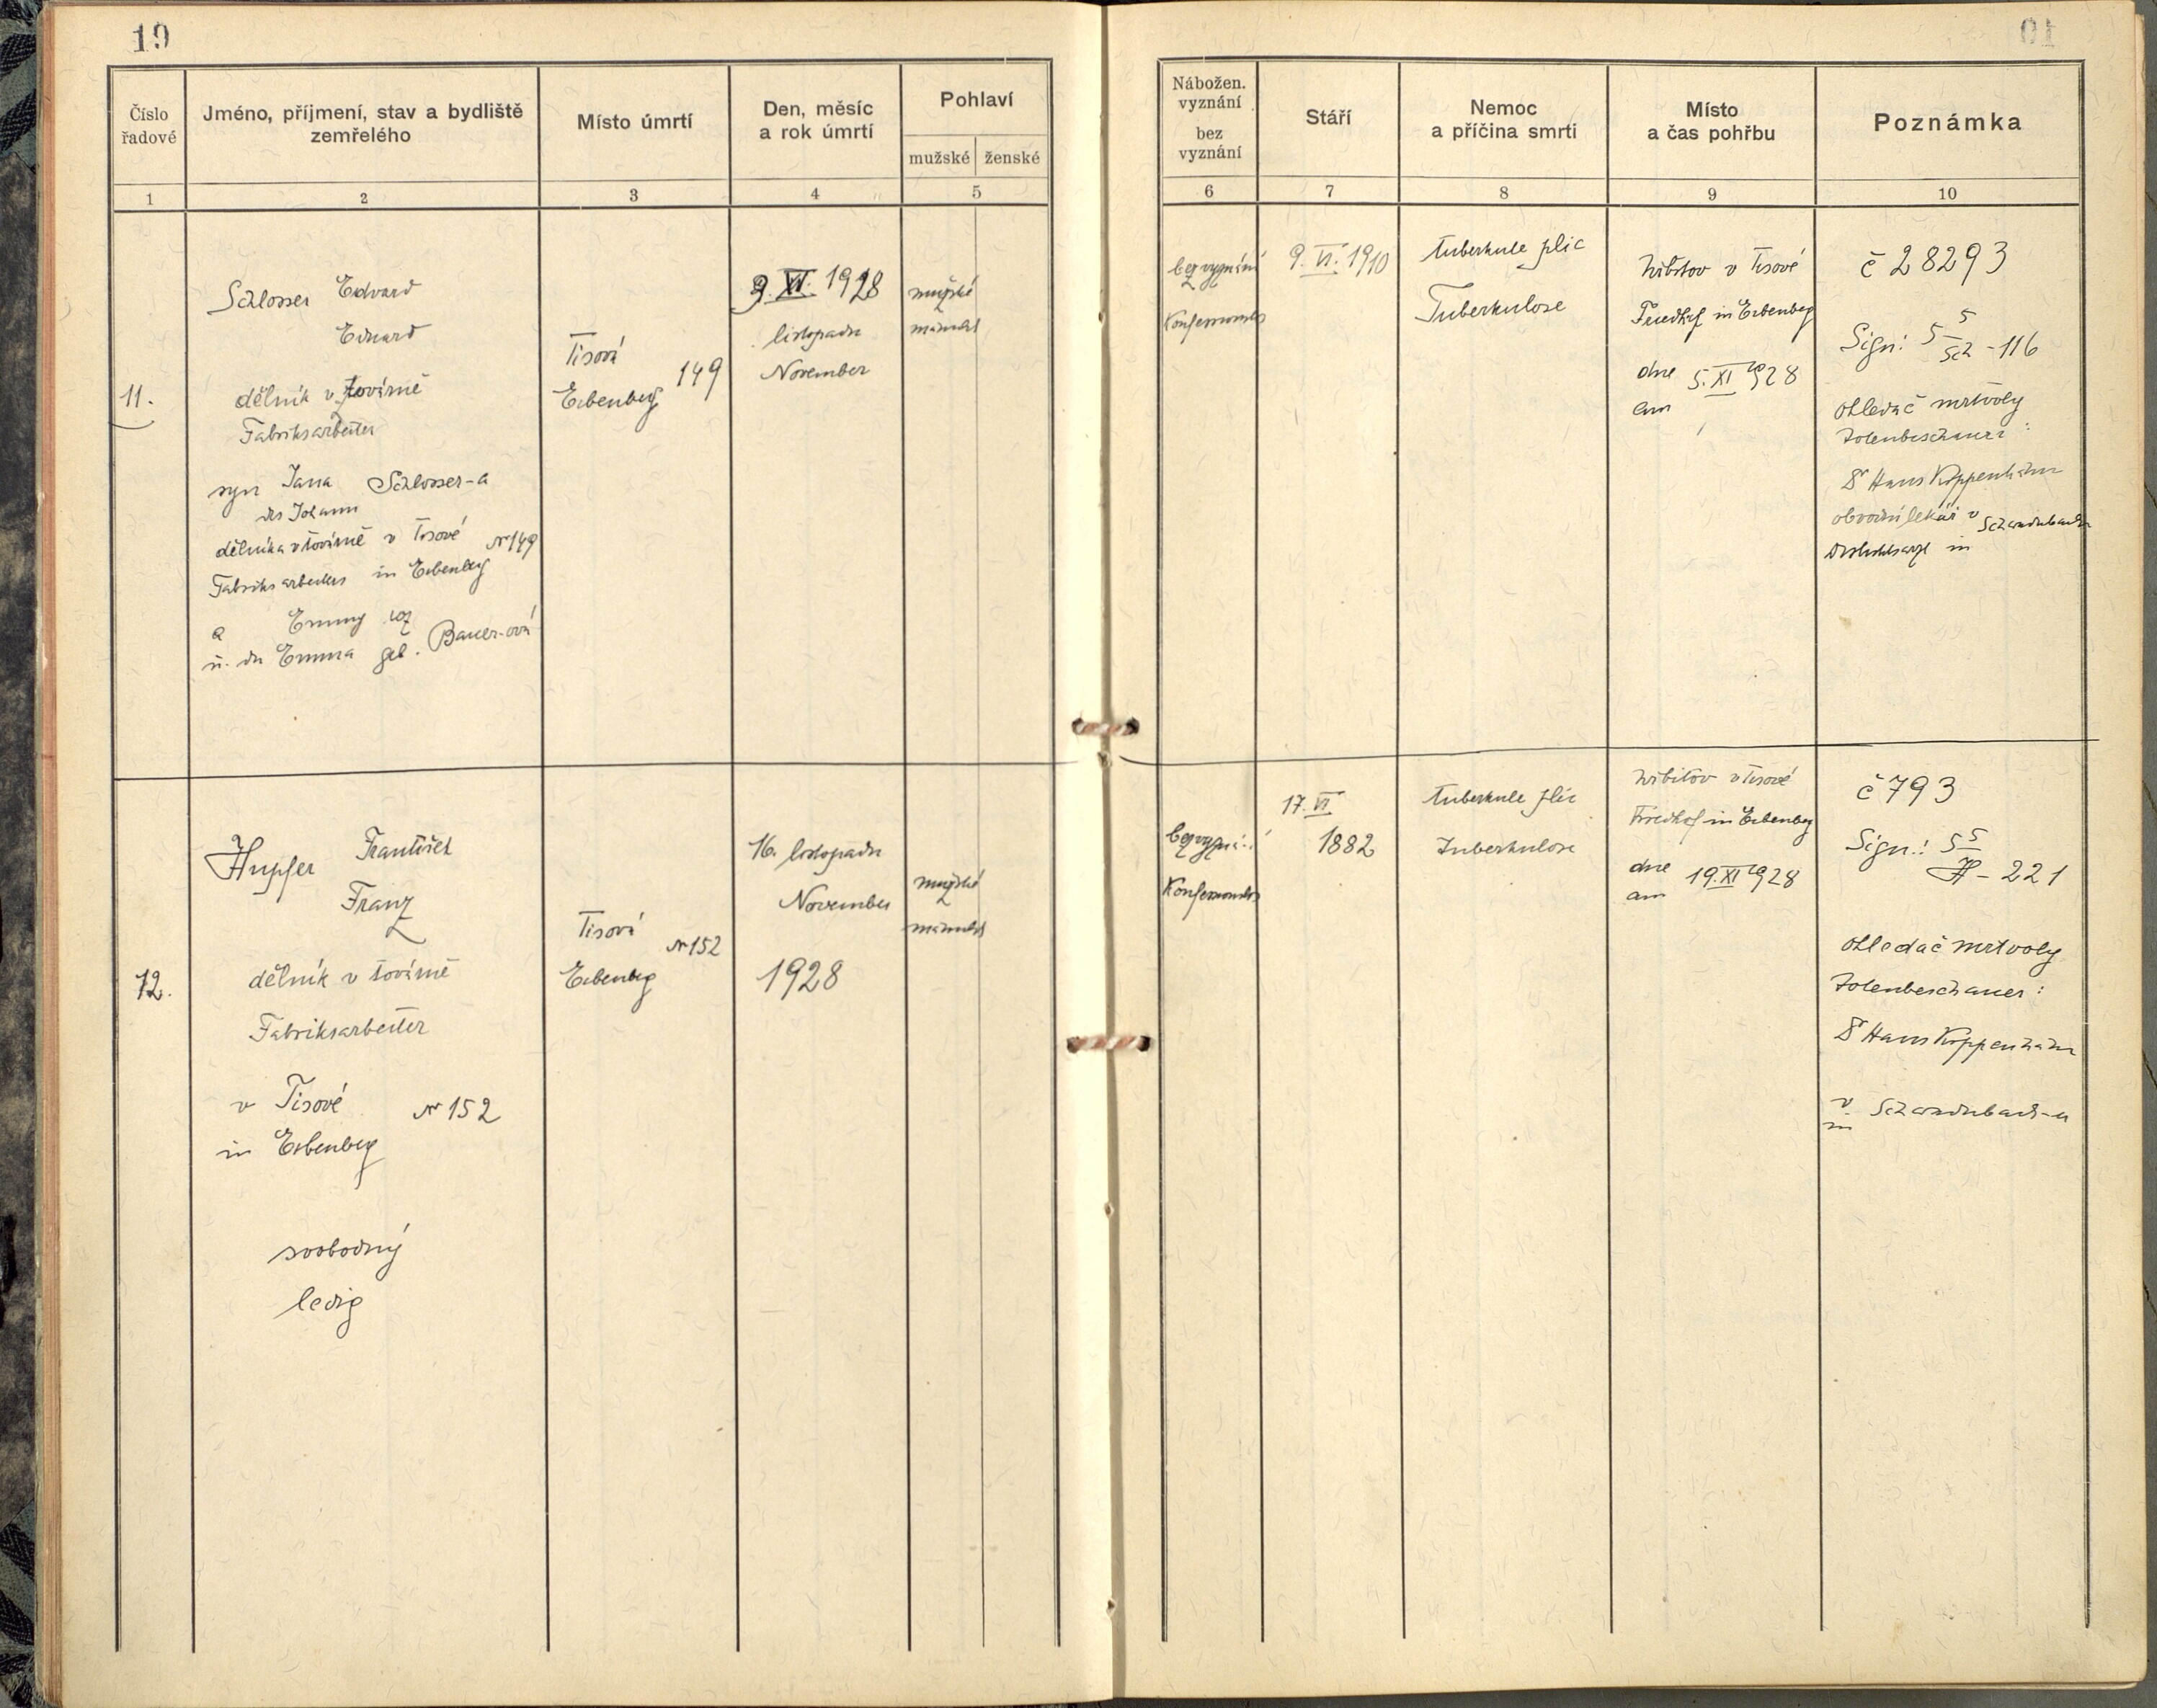 19
Číslo řadové
Jméno, příjmení, stav a bydliště
zemřelého
Místo úmrtí
Den, měsíc
a rok úmrtí
Pohlaví
mužské ženské
1 2 3 4 5
11.
Schlosser Edvard
Eduard
dělník v továrně
Fabriksarbeiter
syn Jana Schlosser-a
des Johann
dělníka v továrně v Tisové № 149
Fabriksarbeiters in Eibenberg
a Emmy roz
u. der Emma geb. Bauer-ová
Tisová
Eibenberg 149
3. XI. 1928
listopadu
November
mužské
männlich
12.
Hupfer František
Franz
dělník v továrně
Fabriksarbeiter
v Tisové № 152
in Eibenberg
svobodný
ledig
Tisová
№ 152
Eibenberg
16. listopadu
November
1928
mužské
männlich
01
Nábožen.
vyznání
bez
vyznání
Stáří
Nemoc
a příčina smrti
Místo
a čas pohřbu
Poznámka
6 7 8 9 10
bez vyznání
Konfessionslos
9. VI. 1910
tuberkule plic
Tuberkulose
hřbitov v Tisové
Friedhof in Eibenberg
dne 5. XI. 1928
am
č 28293
Sign: 5 5
Sch - 116
ohledač mrtvoly
Totenbeschauer:
Dr Hans Koppenhahn
obvodní lékář v Schwaderbach
Distriktsarzt in
bez vyznání
Konfessionslos
17. VI
1882
tuberkule plic
Tuberkulose
hřbitov v Tisové
Friedhof in Eibenberg
dne 19. XI 1928
am
č 793
Sign.: 5 5
H - 221
ohledač mrtvoly
Totenbeschauer:
Dr Hans Koppenhahn
v Schwaderbach-u
in